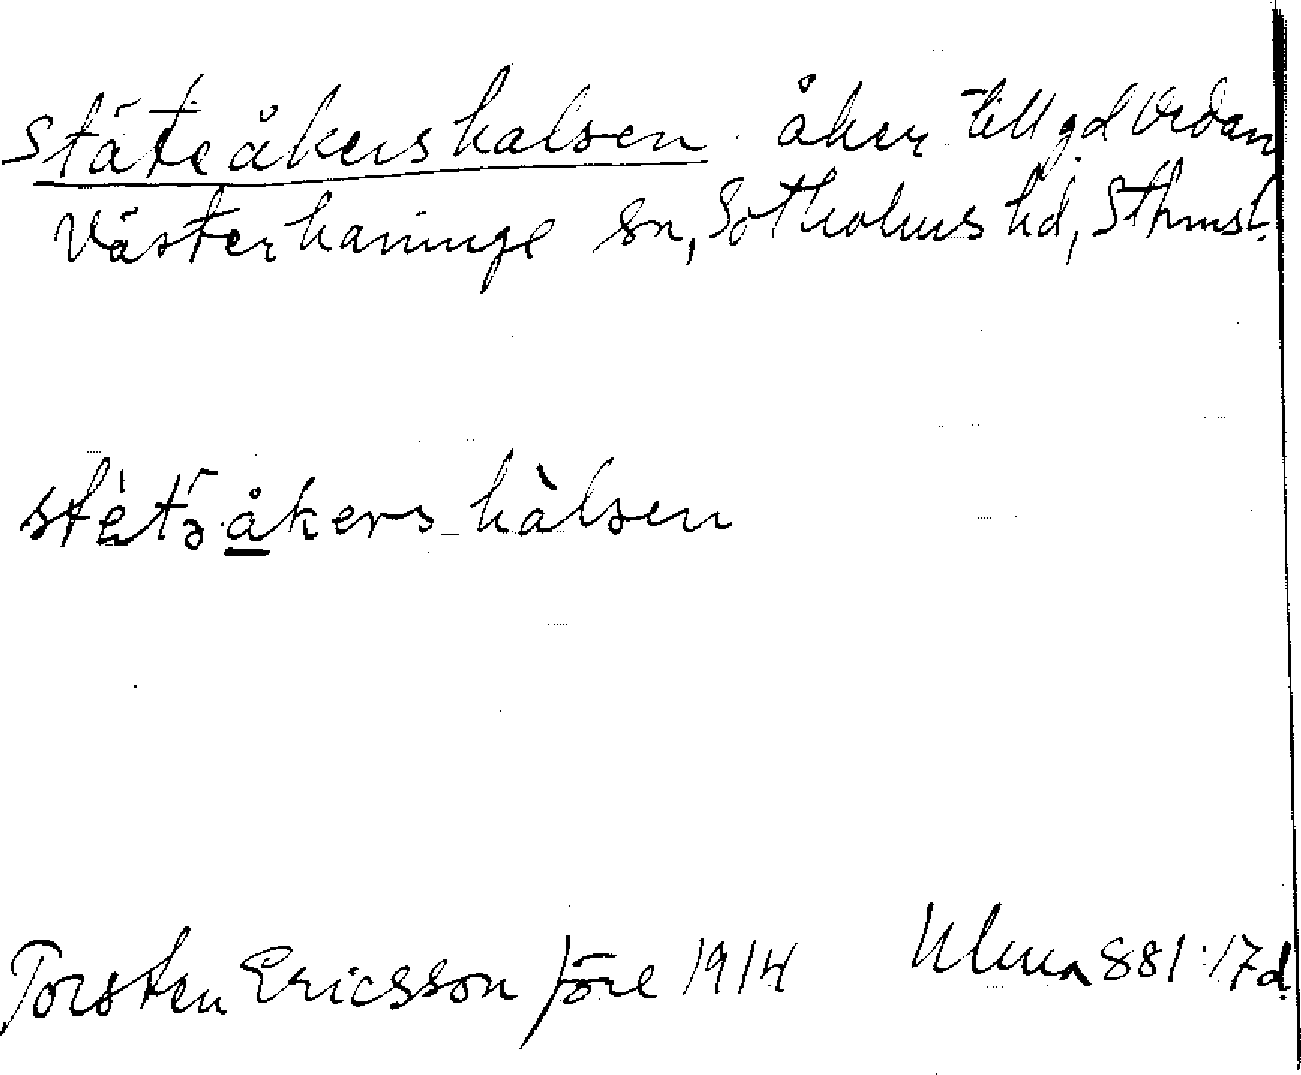 Stäteåkershalsen. åker till gd Vedan
Västerhaninge sn, Sotholms hd, Sthmsl.
stètəåkers_hàlsen
Torsten Ericsson före 1914 Ulma 881:17d.